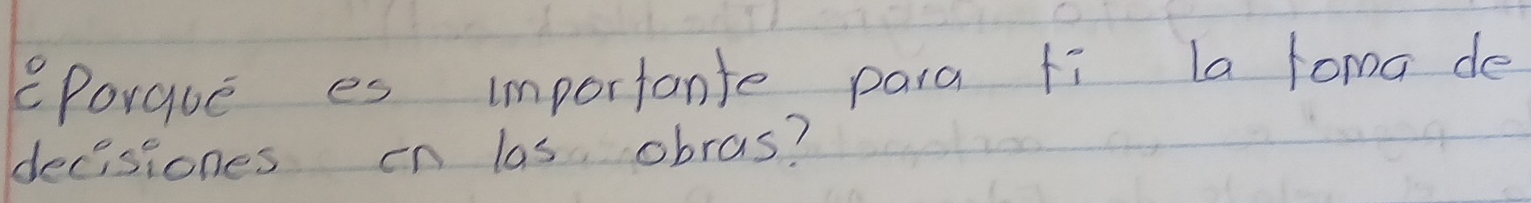 ¿Porqué es importante para ti la toma de
decisiones en las obras?